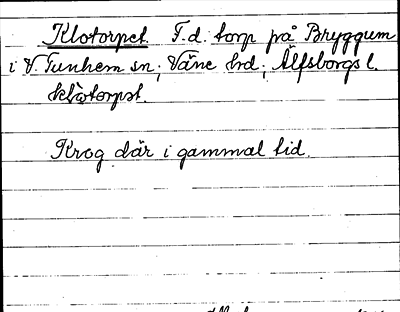 Klotorpet. F.d. torp på Bryggum
i V. Tunhem sn; Väne hd; Älfsborgs l.
klòtorpet.
Krog där i gammal tid.